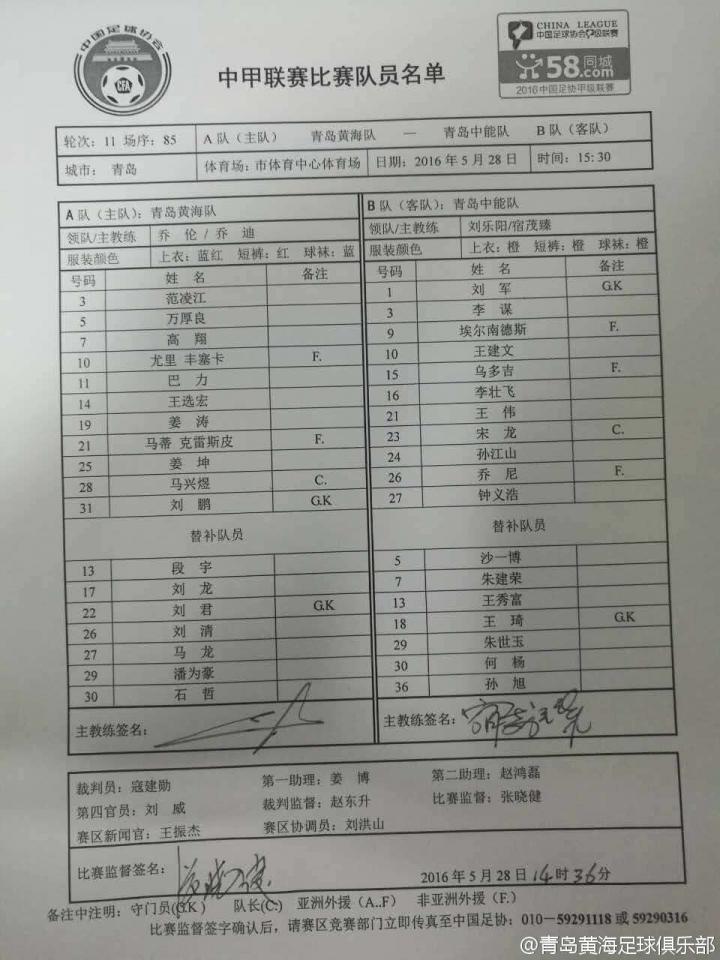 中国足球协会
CFA
CHINA LEAGUE
中国足球协会甲级联赛
58同城
.com
2016中国足协甲级联赛
中甲联赛比赛队员名单
轮次：11 场序：85 A队（主队） 青岛黄海队 — 青岛中能队 B队（客队）
城市：青岛 体育场：市体育中心体育场 日期：2016年5月28日 时间：15:30
A队（主队）：青岛黄海队
领队/主教练 乔 伦 / 乔 迪
服装颜色 上衣：蓝红 短裤：红 球袜：蓝
号码 姓 名 备注
3 范凌江
5 万厚良
7 高 翔
10 尤里 丰塞卡 F.
11 巴 力
14 王选宏
19 姜 涛
21 马蒂 克雷斯皮 F.
25 姜 坤
28 马兴煜 C.
31 刘 鹏 G.K
替补队员
13 段 宇
17 刘 龙
22 刘 君 G.K
26 刘 清
27 马 龙
29 潘为豪
30 石 哲
主教练签名：
B队（客队）：青岛中能队
领队/主教练 刘乐阳/宿茂臻
服装颜色 上衣：橙 短裤：橙 球袜：橙
号码 姓 名 备注
1 刘 军 G.K
3 李 谋
9 埃尔南德斯 F.
10 王建文
15 乌多吉 F.
16 李壮飞
21 王 伟
23 宋 龙 C.
24 孙江山
26 乔 尼 F.
27 钟义浩
替补队员
5 沙一博
7 朱建荣
13 王秀富
18 王 琦 G.K
29 朱世玉
30 何 杨
36 孙 旭
主教练签名：
裁判员：寇建勋 第一助理：姜 博 第二助理：赵鸿磊
第四官员：刘 威 裁判监督：赵东升 比赛监督：张晓健
赛区新闻官：王振杰 赛区协调员：刘洪山
比赛监督签名： 2016年5月28日 14时36分
备注中注明：守门员(G.K) 队长(C.) 亚洲外援（A..F） 非亚洲外援（F.）
比赛监督签字确认后，请赛区竞赛部门立即传真至中国足协：010-59291118 或 59290316
@青岛黄海足球俱乐部